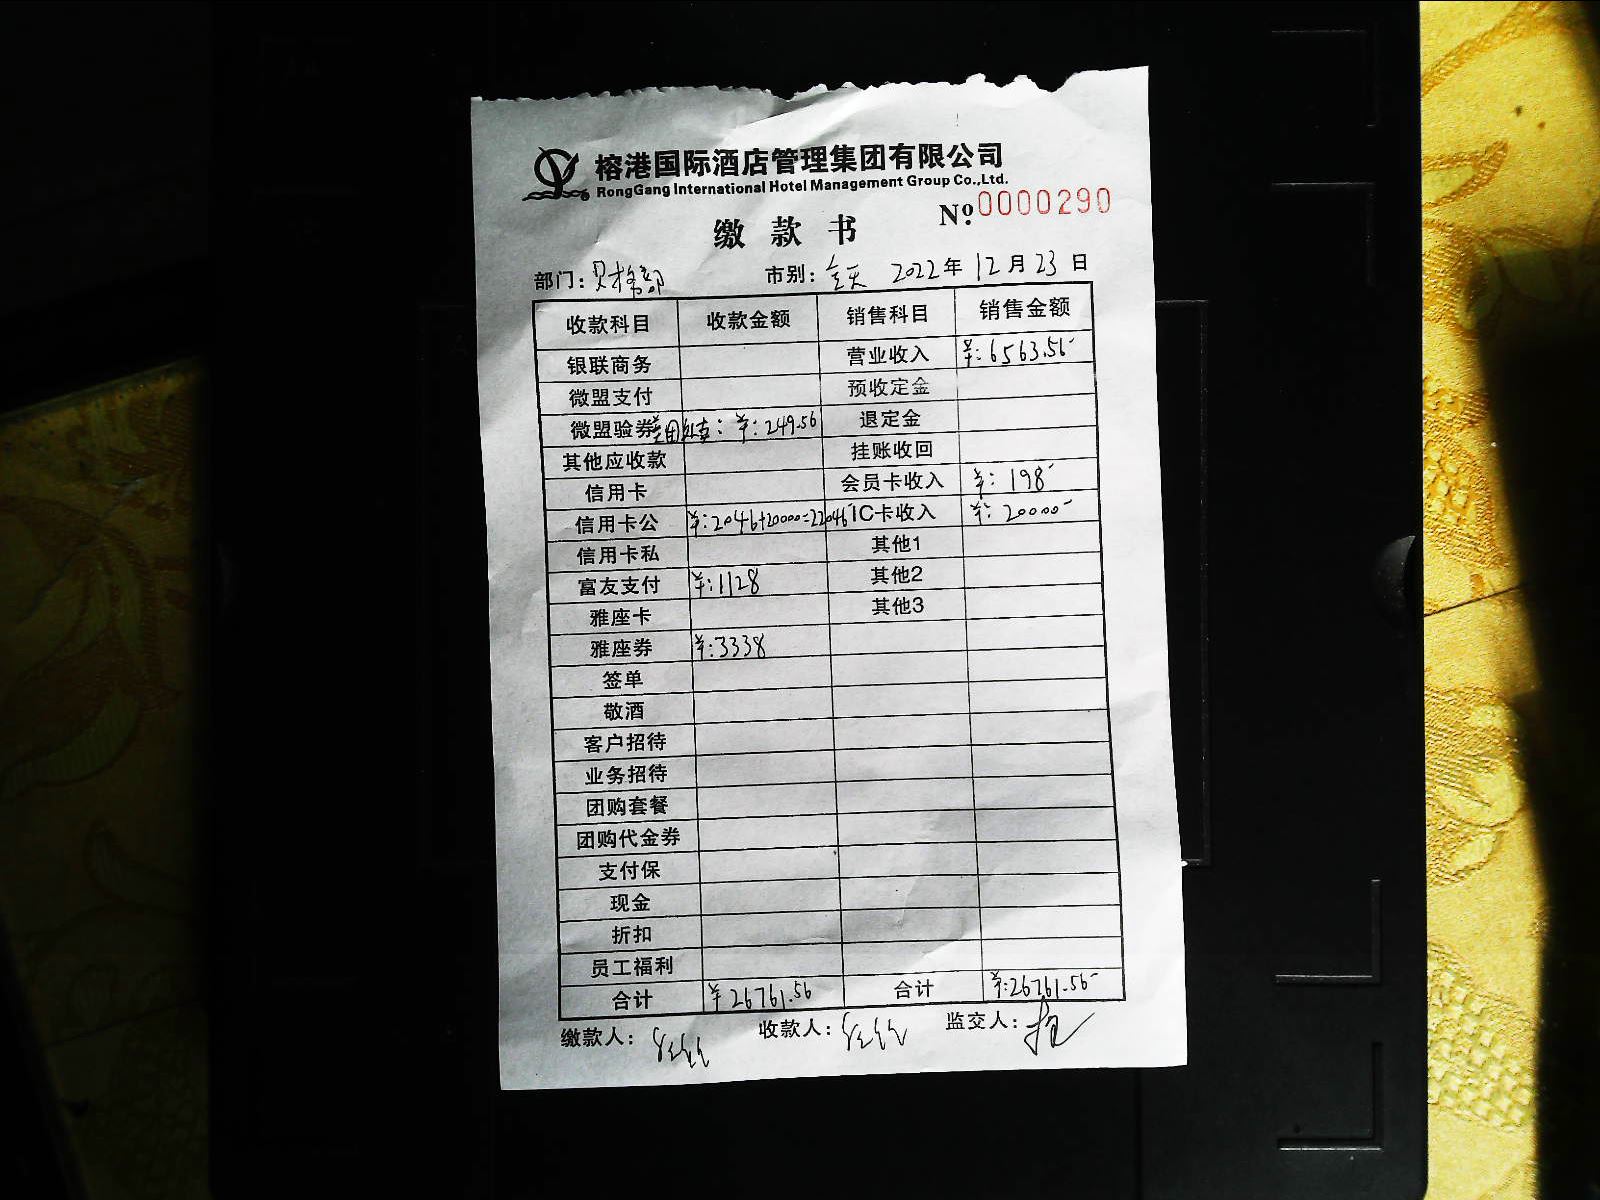 榕港国际酒店管理集团有限公司
RongGang International Hotel Management Group Co.,Ltd.
缴款书 №:0000290
部门:财务部 市别:全天 2022年12月23日
收款科目 收款金额 销售科目 销售金额
银联商务 营业收入 ¥:6563.56
微盟支付 预收定金
微盟验券 美团外卖:¥:249.56 退定金
其他应收款 挂账收回
信用卡 会员卡收入 ¥:198
信用卡公 ¥:2046+20000=22046 IC卡收入 ¥:20000
信用卡私 其他1
富友支付 ¥:1128 其他2
雅座卡 其他3
雅座券 ¥:3338
签单
敬酒
客户招待
业务招待
团购套餐
团购代金券
支付保
现金
折扣
员工福利
合计 ¥26761.56 合计 ¥:26761.56
缴款人: 收款人: 监交人: